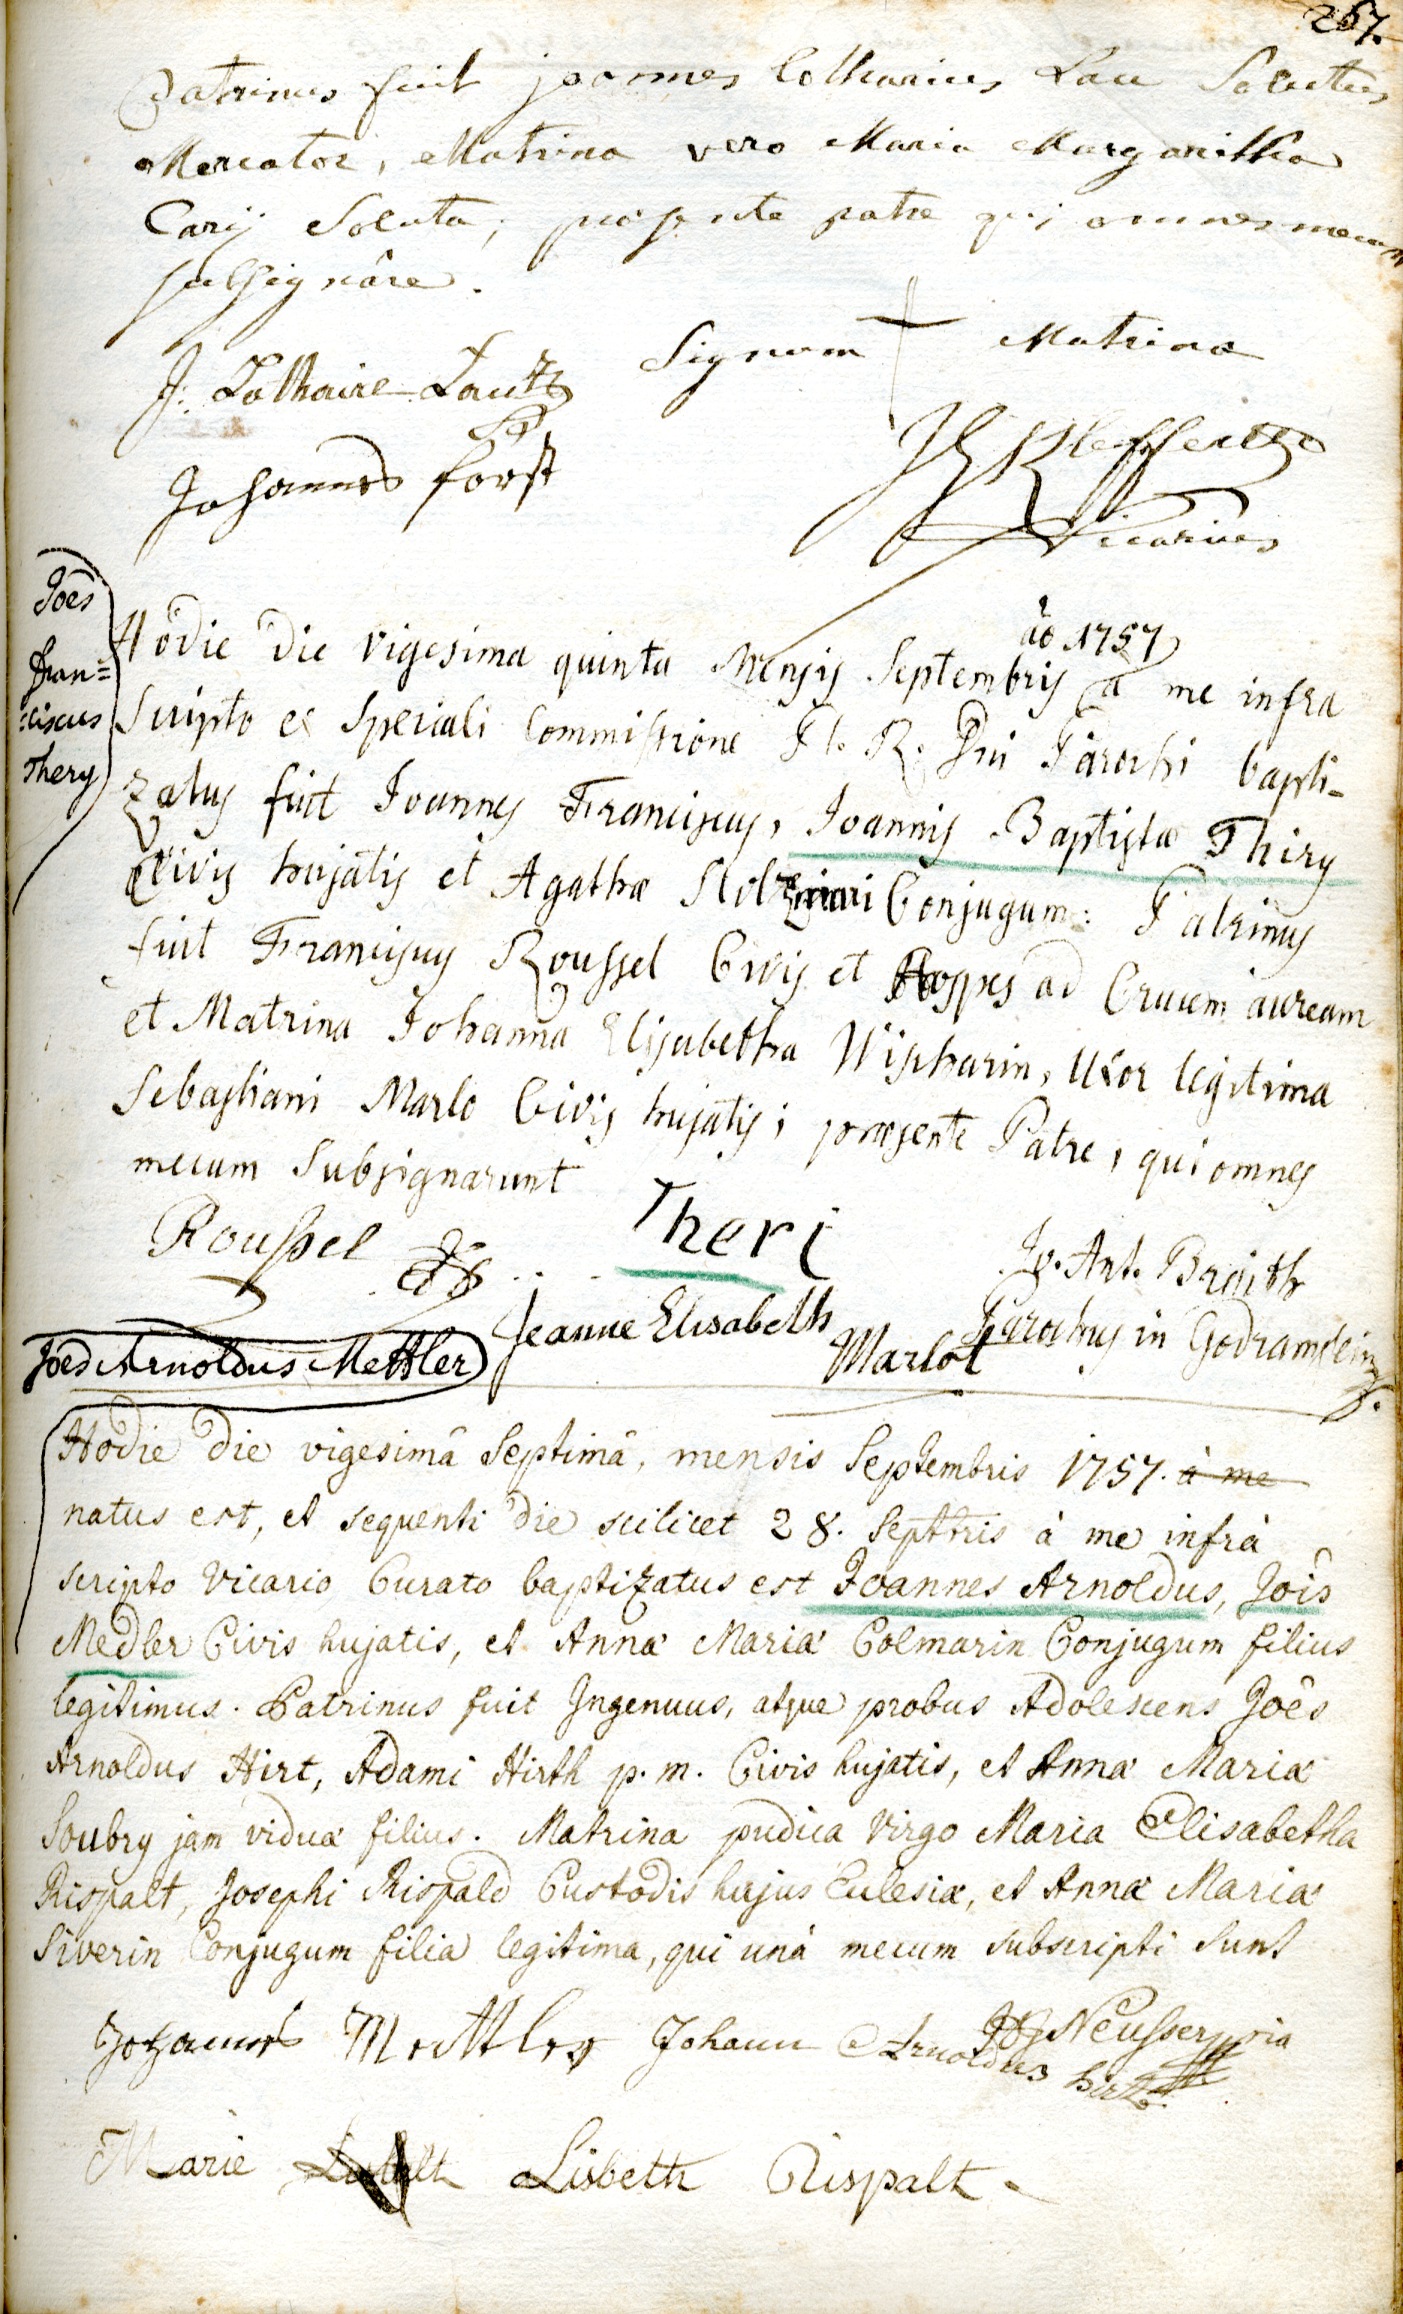 267.
Patrinus fuit joannes lotharius Lau Solutus
Mercator, Matrina vero Maria Margaritha
Carij Soluta, præsente patre qui omnes mecum
subsignâre.
J: Lothaire Lautz Signum + Matrinæ
Johannes forst
Vicarius
Joês
Fran=
ciscus
Thery
Hodie die vigesima quinta Mensis Septembris aô 1757 a me infra
Scripto ex Speciali Commissione Pl. R. Dni Parochi bapti-
zatus fuit Joannes Franciscus, Joannis Baptistæ Thiry
Civis hujatis et Agathæ Conjugum: Patrinus
fuit Franciscus Roussel Civis et Hospes ad Crucem auream
et Matrina Johanna Elisabetha Wischarin, Uxor legitima
Sebastiani Marlo Civis hujatis; præsente Patre, qui omnes
mecum Subsignarunt
Roussel Theri Jo. Ant. Braith
Jeanne Elisabeth Marlot Parochus in Godramstein
Joês Arnoldus Mettler
Hodie die vigesimâ Septimâ, mensis Septembris 1757. à me
natus est, et sequenti die scilicet 28. Septbris à me infrà
scripto Vicario Curato baptizatus est Joannes Arnoldus, Joîs
Medler Civis hujatis, et Annæ Mariæ Colmarin Conjugum filius
legitimus. Patrinus fuit Ingenuus, atque probus Adolescens Joês
Arnoldus Hirt, Adami Hirth p. m. Civis hujatis, et Annæ Mariæ
Soubry jam viduæ filius. Matrina pudica Virgo Maria Elisabetha
Rispalt, Josephi Rispald Custodis hujus Eclesiæ, et Annæ Mariæ
Siverin Conjugum filia legitima, qui unà mecum subscripti sunt
Johannes Mettler Johann Arnoldus hirt Neusser
Marie Lisbeth Rispalt